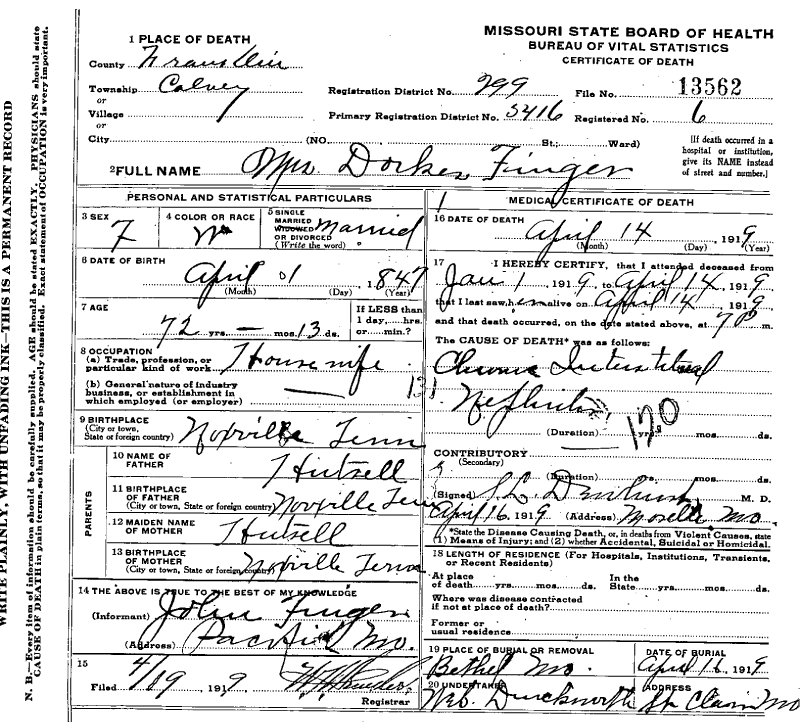 MISSOURI STATE BOARD OF HEALTH
BUREAU OF VITAL STATISTICS
CERTIFICATE OF DEATH
1 PLACE OF DEATH
County Franklin
Township Calvey
or
Village
or
City (NO. St.; Ward)
Registration District No. 299 File No. 13562
Primary Registration District No. 5416 Registered No. 6
[If death occurred in a hospital or institution, give its NAME instead of street and number.]
2 FULL NAME Mrs Dorkes Finger
PERSONAL AND STATISTICAL PARTICULARS
3 SEX F
4 COLOR OR RACE W
5 SINGLE MARRIED WIDOWED OR DIVORCED (Write the word) Married
6 DATE OF BIRTH April 01 1847
(Month) (Day) (Year)
7 AGE 72 yrs. — mos. 13 ds.
If LESS than 1 day,....hrs. or.....min.?
8 OCCUPATION
(a) Trade, profession, or particular kind of work Housewife
(b) General nature of industry business, or establishment in which employed (or employer)
131
9 BIRTHPLACE
(City or town, State or foreign country) Noxville Tenn
PARENTS
10 NAME OF FATHER Hutsell
11 BIRTHPLACE OF FATHER
(City or town, State or foreign country) Noxville Tenn
12 MAIDEN NAME OF MOTHER Hutsell
13 BIRTHPLACE OF MOTHER
(City or town, State or foreign country) Noxville Tenn
14 THE ABOVE IS TRUE TO THE BEST OF MY KNOWLEDGE
(Informant) John Finger
(Address) Pacific Mo.
15
Filed 4/19 1919
Registrar
MEDICAL CERTIFICATE OF DEATH
16 DATE OF DEATH April 14, 1919
(Month) (Day) (Year)
17 I HEREBY CERTIFY, that I attended deceased from
Jan 1 1919, to April 14, 1919
that I last saw her alive on April 14 1919
and that death occurred, on the date stated above, at m.
The CAUSE OF DEATH* was as follows:
Chronic Interstitial
Nephritis
120
(Duration) yrs. mos. ds.
CONTRIBUTORY
(Secondary)
(Duration) yrs. mos. ds.
(Signed) M. D.
April 16, 1919 (Address) Moselle Mo.
*State the Disease Causing Death, or, in deaths from Violent Causes, state (1) Means of Injury; and (2) whether Accidental, Suicidal or Homicidal.
18 LENGTH OF RESIDENCE (For Hospitals, Institutions, Transients, or Recent Residents)
At place of death yrs. mos. ds. In the State yrs. mos. ds.
Where was disease contracted if not at place of death?
Former or usual residence
19 PLACE OF BURIAL OR REMOVAL Bethel Mo.
DATE OF BURIAL April 16, 1919
20 UNDERTAKER Duckworth
ADDRESS St Clair Mo
WRITE PLAINLY, WITH UNFADING INK—THIS IS A PERMANENT RECORD
N. B.—Every item of information should be carefully supplied. AGE should be stated EXACTLY. PHYSICIANS should state
CAUSE OF DEATH in plain terms, so that it may be properly classified. Exact statement of OCCUPATION is very important.